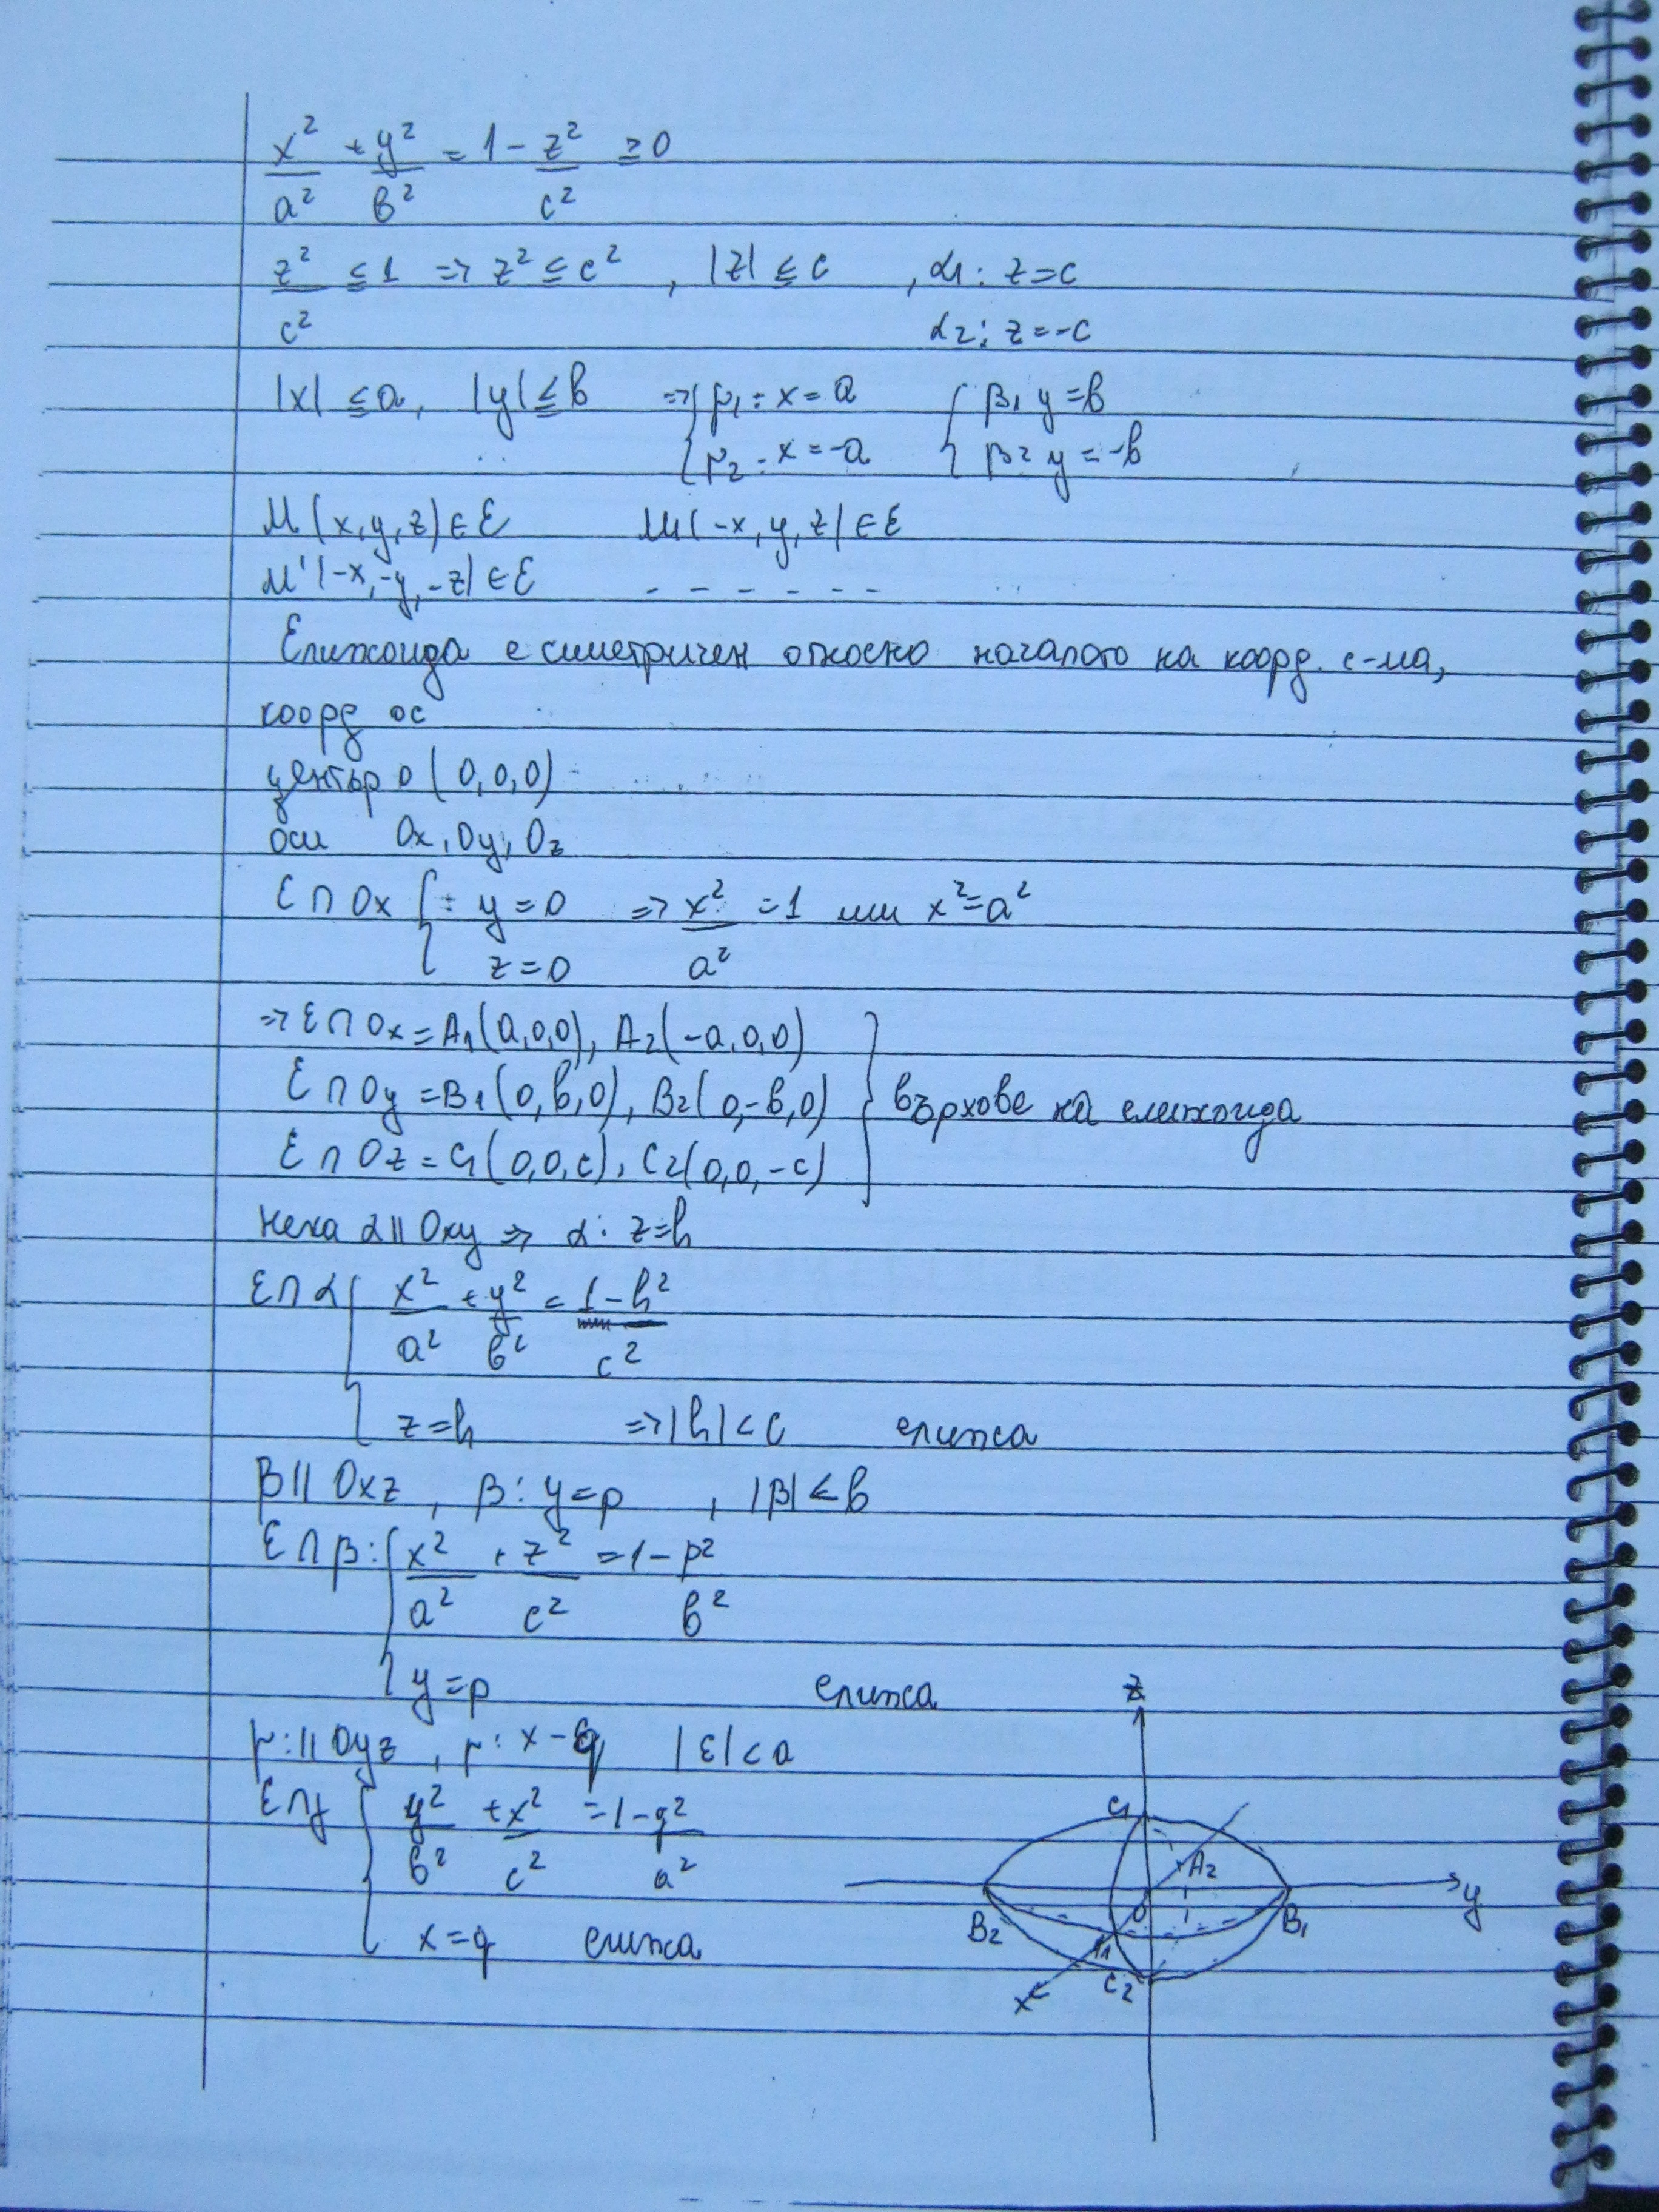 x²/a² + y²/в² = 1 - z²/c² ≥ 0
z²/c² ≤ 1 => z² ≤ c² , |z| ≤ c , α1: z = c
α2: z = -c
|x| ≤ a, |y| ≤ в => { γ1: x = a { β1 y = в
γ2: x = -a β2 y = -в
M(x,y,z) ∈ Ɛ M1(-x, y, z) ∈ Ɛ
M'(-x,-y,-z) ∈ Ɛ - - - - - -
Елипсоида е симетричен относно началото на коорд. с-ма,
коорд ос
център O (0,0,0)
оси Ox, Oy, Oz
Ɛ ∩ Ox { : y = 0 => x²/a² = 1 или x² = a²
z = 0
=> Ɛ ∩ Ox = A1(a,0,0), A2(-a,0,0)
Ɛ ∩ Oy = B1(0,в,0), B2(0,-в,0) } върхове на елипсоида
Ɛ ∩ Oz = C1(0,0,c), C2(0,0,-c)
Нека α || Oxy => α: z = h
Ɛ ∩ α { x²/a² + y²/в² = 1 - h²/c²
z = h => |h| < c елипса
β || Oxz , β: y = p , |β| < в
Ɛ ∩ β: { x²/a² + z²/c² = 1 - p²/в²
y = p елипса
γ: || Oyz , γ: x - q |Ɛ| < a
Ɛ ∩ γ { y²/в² + x²/c² = 1 - q²/a²
x = q елипса
z
C1
A2
y
B2
O
B1
A1
C2
x